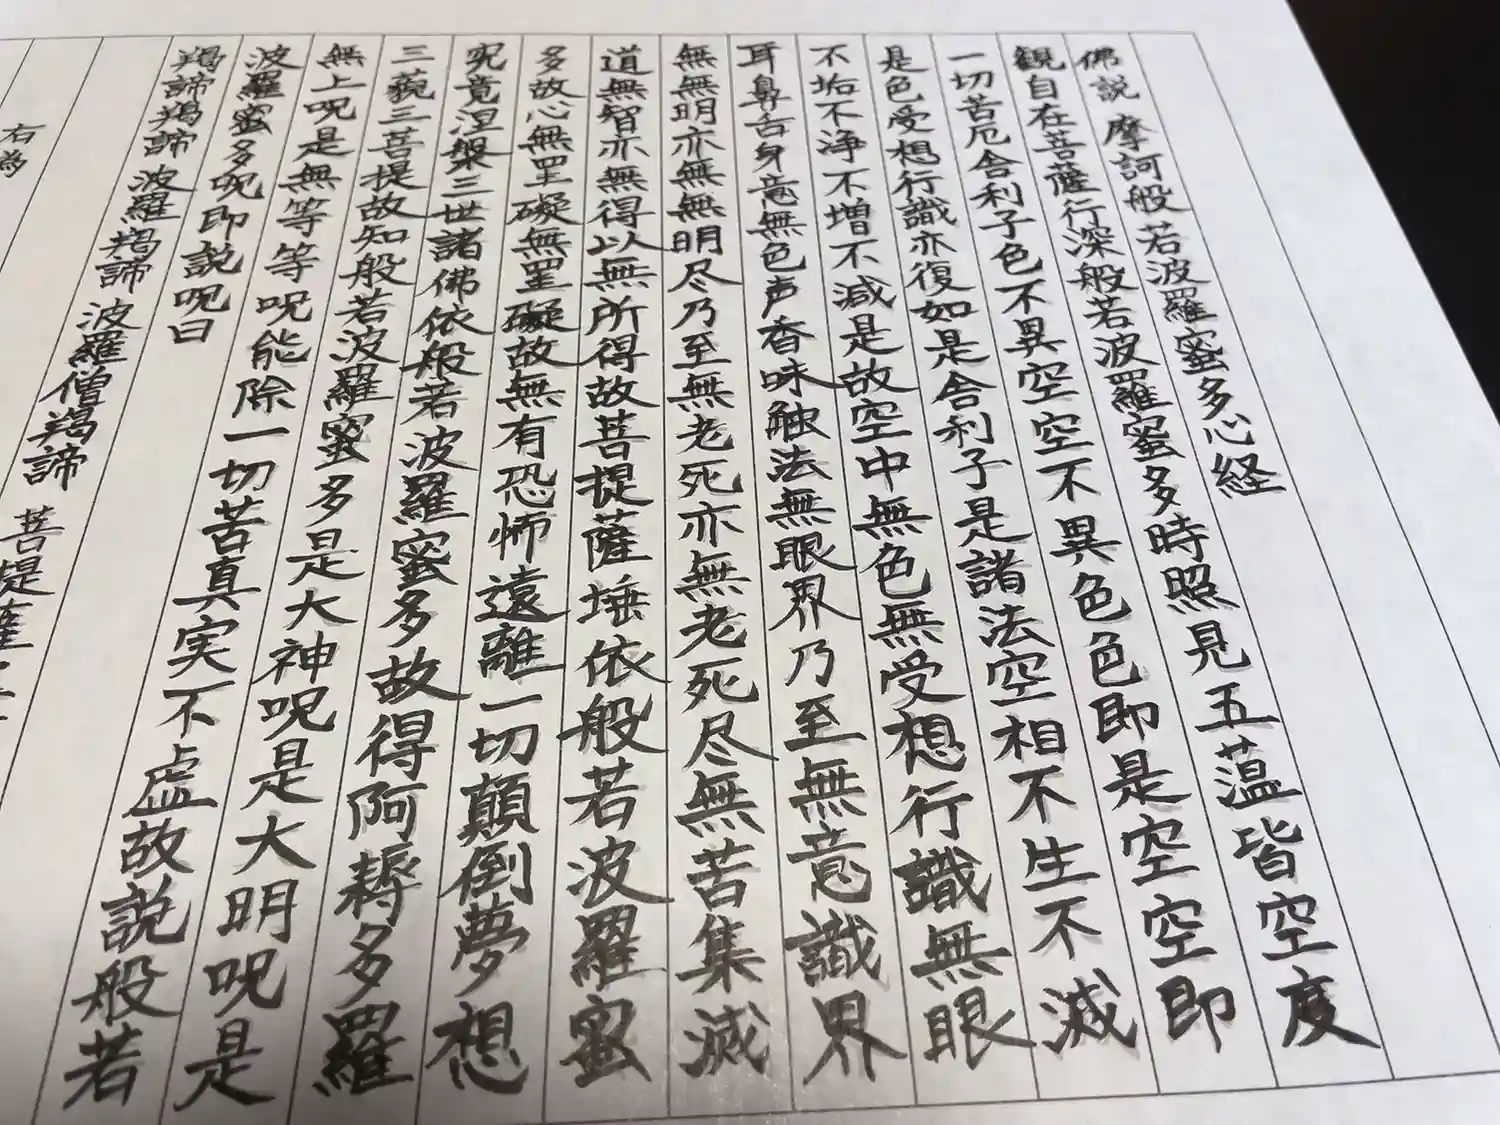 佛説 摩訶般若波羅蜜多心経
観自在菩薩行深般若波羅蜜多時照見五薀皆空度
一切苦厄舎利子色不異空空不異色色即是空空即
是色受想行識亦復如是舎利子是諸法空相不生不滅
不垢不浄不増不減是故空中無色無受想行識無眼
耳鼻舌身意無色声香味触法無眼界乃至無意識界
無無明亦無無明尽乃至無老死亦無老死尽無苦集滅
道無智亦無得以無所得故菩提薩埵依般若波羅蜜
多故心無罣礙無罣礙故無有恐怖遠離一切顛倒夢想
究竟涅槃三世諸佛依般若波羅蜜多故得阿耨多羅
三藐三菩提故知般若波羅蜜多是大神呪是大明呪是
無上呪是無等等呪能除一切苦真実不虚故説般若
波羅蜜多呪即説呪曰
羯諦羯諦 波羅羯諦 波羅僧羯諦 菩提薩
右為